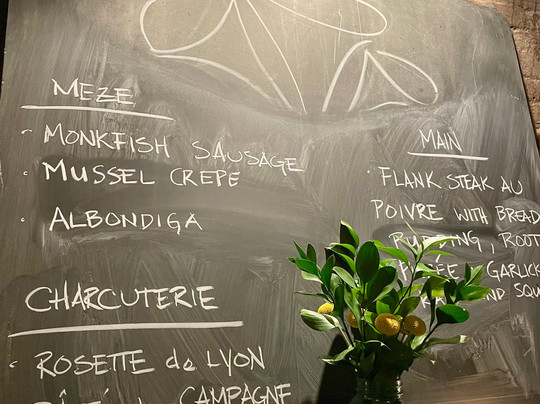 MEZE
· MONKFISH SAUSAGE
· MUSSEL CREPE
· ALBONDIGA
CHARCUTERIE
· ROSETTE de LYON
CAMPAGNE
MAIN
· FLANK STEAK AU
POIVRE WITH BREAD
ROOT
GARLICK